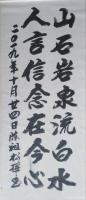 山石岩泉流白水
人言信念在今心
二〇一九年十月廿四日陈祖松